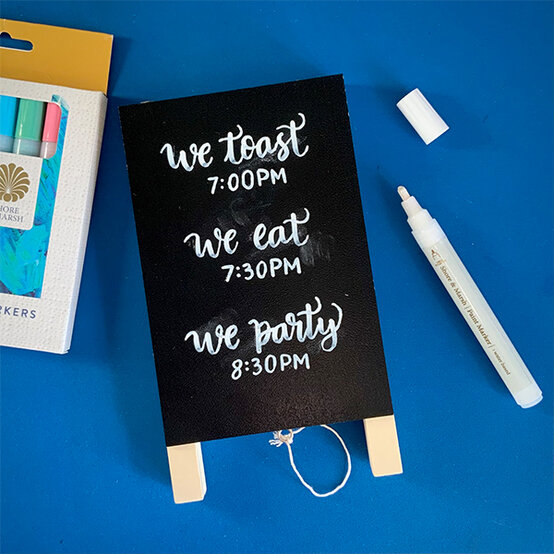 we toast
7:00PM
we eat
7:30PM
we party
8:30PM
Shore & Marsh | Paint Marker | water based